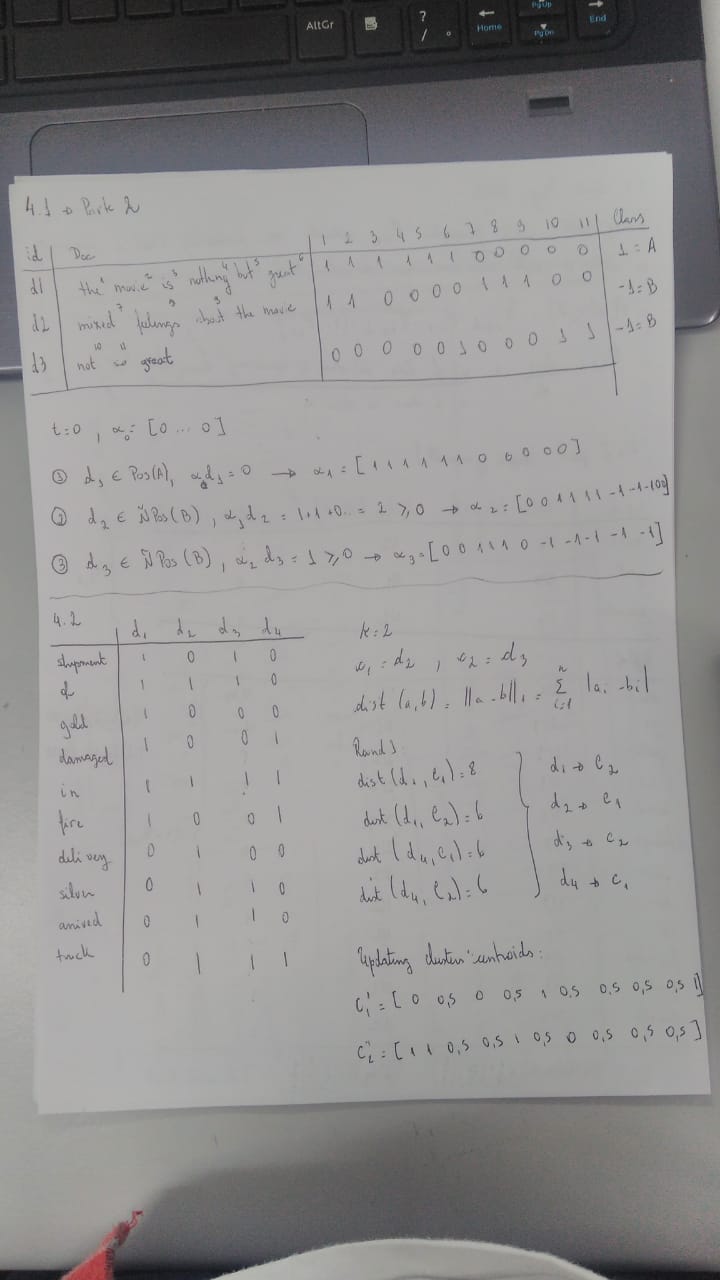 AltGr
?
/
Home
PgUp
PgDn
End
4.1 → Parte 2
id Doc 1 2 3 4 5 6 7 8 9 10 11 Class
d1 the¹ movie² is³ nothing⁴ but⁵ great⁶ 1 1 1 1 1 1 0 0 0 0 0 1 = A
d2 mixed⁷ feelings⁸ about⁹ the movie 1 1 0 0 0 0 1 1 1 0 0 -1 = B
d3 not¹⁰ so¹¹ great 0 0 0 0 0 1 0 0 0 1 1 -1 = B
t=0 , α₀= [0 ... 0]
① d₁ ∈ Pos(A), α₀d₁ = 0 → α₁ = [1 1 1 1 1 1 0 0 0 0 0]
② d₂ ∈ ÑPos(B), α₁d₂ = 1+1+0.. = 2 ≥ 0 → α₂ = [0 0 1 1 1 1 -1 -1 -1 0 0]
③ d₃ ∈ ÑPos(B), α₂d₃ = 1 ≥ 0 → α₃ = [0 0 1 1 1 0 -1 -1 -1 -1 -1]
4.2
d₁ d₂ d₃ d₄
shipment 1 0 1 0
of 1 1 1 0
gold 1 0 0 0
damaged 1 0 0 1
in 1 1 1 1
fire 1 0 0 1
delivery 0 1 0 0
silver 0 1 1 0
arrived 0 1 1 0
truck 0 1 1 1
k = 2
c₁ = d₂ , c₂ = d₃
dist (a,b) = ||a-b||₁ = Σⁿᵢ₌₁ |aᵢ - bᵢ|
Round 1:
dist (d₁, c₁) = 8
dist (d₁, c₂) = 6
dist (d₄, c₁) = 6
dist (d₄, c₂) = 6
d₁ → c₂
d₂ → c₁
d₃ → c₂
d₄ → c₁
Updating cluster centroids:
c₁' = [0 0,5 0 0,5 1 0,5 0,5 0,5 0,5 1]
c₂' = [1 1 0,5 0,5 1 0,5 0 0,5 0,5 0,5]